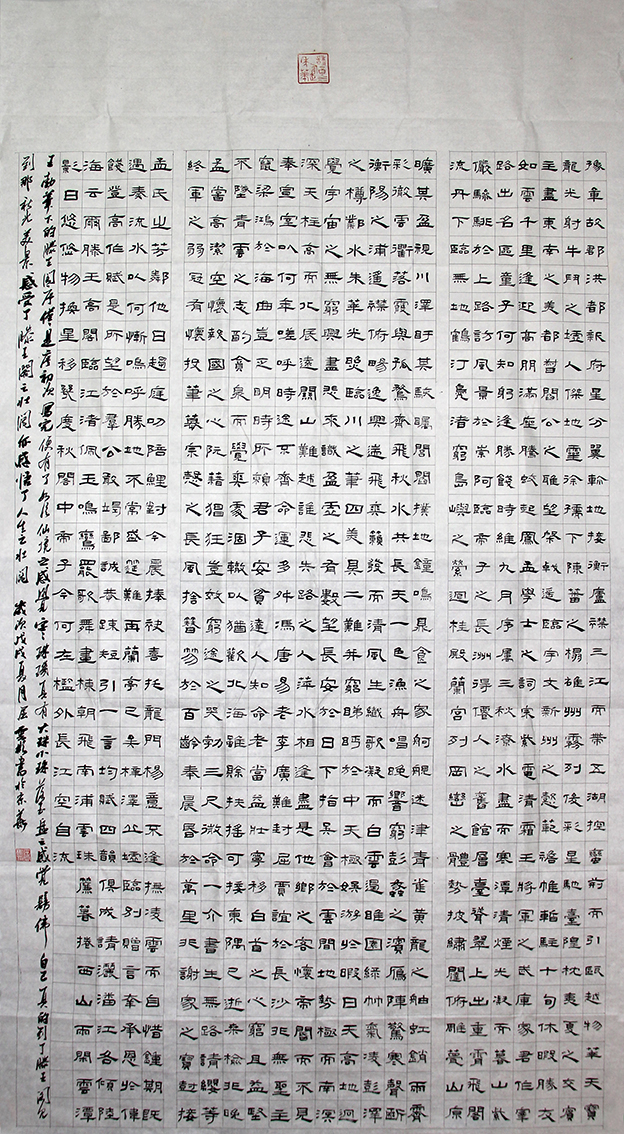 豫章故郡洪都新府星分翼軫地接衡廬襟三江而帶五湖控蠻荊而引甌越物華天寶
龍光射牛鬥之墟人傑地靈徐孺下陳蕃之榻雄州霧列俊彩星馳臺隍枕夷夏之交賓
主盡東南之美都督閻公之雅望棨戟遙臨宇文新州之懿範襜帷暫駐十旬休暇勝友
如雲千里逢迎高朋滿座騰蛟起鳳孟學士之詞宗紫電清霜王將軍之武庫家君作宰
路出名區童子何知躬逢勝餞時維九月序屬三秋潦水盡而寒潭清煙光凝而暮山紫
儼驂騑於上路訪風景於崇阿臨帝子之長洲得僊人之舊館層臺聳翠上出重霄飛閣
流丹下臨無地鶴汀鳧渚窮島嶼之縈迴桂殿蘭宮列岡巒之體勢披繡闥俯雕甍山原
曠其盈視川澤盱其駭矚閭閻撲地鐘鳴鼎食之家舸艦迷津青雀黃龍之舳虹銷雨霽
彩徹雲衢落霞與孤鶩齊飛秋水共長天一色漁舟唱晚響窮彭蠡之濱雁陣驚寒聲斷
衡陽之浦遙襟俯暢逸興遄飛爽籟發而清風生纖歌凝而白雲遏睢園綠竹氣凌彭澤
之樽鄴水朱華光照臨川之筆四美具二難并窮睇眄於中天極娛游於暇日天高地迥
覺宇宙之無窮興盡悲來識盈虛之有數望長安於日下指吳會於雲間地勢極而南溟
深天柱高而北辰遠關山難越誰悲失路之人萍水相逢盡是他鄉之客懷帝閽而不見
奉宣室以何年嗟呼時途不齊命運多舛馮唐易老李廣難封屈賈誼於長沙非無聖主
竄梁鴻於海曲豈乏明時所賴君子安貧達人知命老當益壯寧移白首之心窮且益堅
不墜青雲之志酌貪泉而覺爽處涸轍以猶歡北海雖賒扶搖可接東隅已逝桑榆非晚
孟嘗高潔空懷報國之心阮籍猖狂豈效窮途之哭勃三尺微命一介書生無路請纓等
終軍之弱冠有懷投筆慕宗愨之長風捨簪笏於百齡奉晨昏於萬里非謝家之寶樹接
孟氏之芳鄰他日趨庭叨陪鯉對今晨捧袂喜托龍門楊意不逢撫凌雲而自惜鍾期既
遇奏流水以何慚嗚呼勝地不常盛筵難再蘭亭已矣梓澤丘墟臨別贈言幸承恩於偉
餞登高作賦是所望於群公敢竭鄙誠恭疎短引一言均賦四韻俱成請灑潘江各傾陸
海云爾滕王高閣臨江渚佩玉鳴鸞罷歌舞畫棟朝飛南浦雲珠簾暮捲西山雨閒雲潭
影日悠悠物換星移幾度秋閣中帝子今何在檻外長江空自流
王勃筆下的滕王閣序傳是唐初 寫完便有了如臨仙境之感覺 真有大珠小珠落玉盤之感覺 自己真的到了滕王閣
到那秋北美景感受了滕王閣之壯闊 感悟了人生之壯闊 歲次戊戌夏月 書於京華